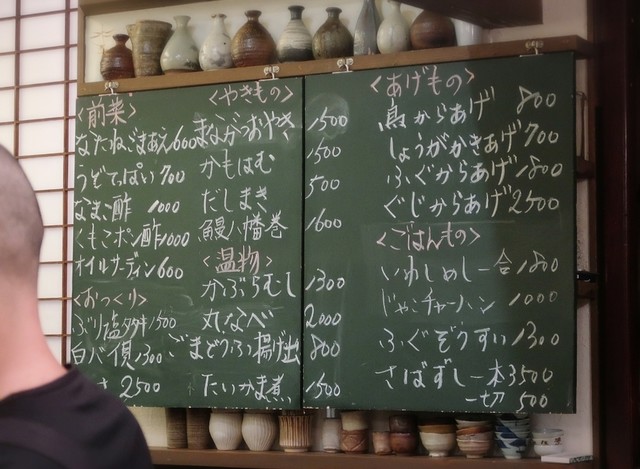 <前菜>
なたねごまあえ 600
うぞてっぱい 700
なまこ酢 1000
くもこポン酢 1000
オイルサーディン 600
<おつくり>
ぶり塩タタキ 1500
白バイ貝 1300
さ 2500
<やきもの>
まながつおやき 1500
かもはむ 1500
だしまき 500
鰻八幡巻 1600
<温物>
かぶらむし 1300
丸なべ 2000
ごまどうふ揚げ出 800
たいかま煮 1500
<あげもの>
鳥からあげ 800
しょうがかきあげ 700
ふぐからあげ 1800
ぐじからあげ 2500
<ごはんもの>
いわしめし一合 1800
じゃこチャーハン 1000
ふぐぞうすい 1300
さばずし一本 3500
一切 500